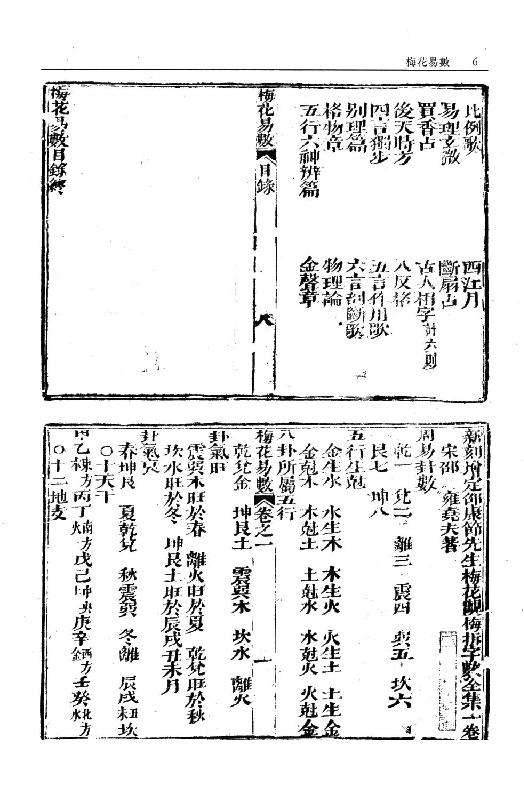 梅花易數 6
比例歌 西江月
易理玄微 斷扇占
買香占 古人相字計六則
後天時方 八反格
四言獨步 五言作用歌
別理篇 六言剖斷歌
格物章 物理論
五行六神辨篇 金聲章
梅花易數 目錄 八
梅花易數目錄終
新刻增定邵康節先生梅花觀梅拆字數全集一卷
宋邵 雍堯夫著
周易卦數
乾一 兌二 離三 震四 巽五 坎六
艮七 坤八
五行生剋
金生水 水生木 木生火 火生土 土生金
金剋木 木剋土 土剋水 水剋火 火剋金
八卦所屬五行
梅花易數 卷之一 一
乾兌金 坤艮土 震巽木 坎水 離火
卦氣旺
震巽木旺於春 離火旺於夏 乾兌旺於秋
坎水旺於冬 坤艮土旺於辰戌丑未月
卦氣衰
春坤艮 夏乾兌 秋震巽 冬離 辰戌丑坎
○十天干
甲乙 東方木 丙丁 南方火 戊己 庚辛 西方金 壬癸 北方水
○十二地支